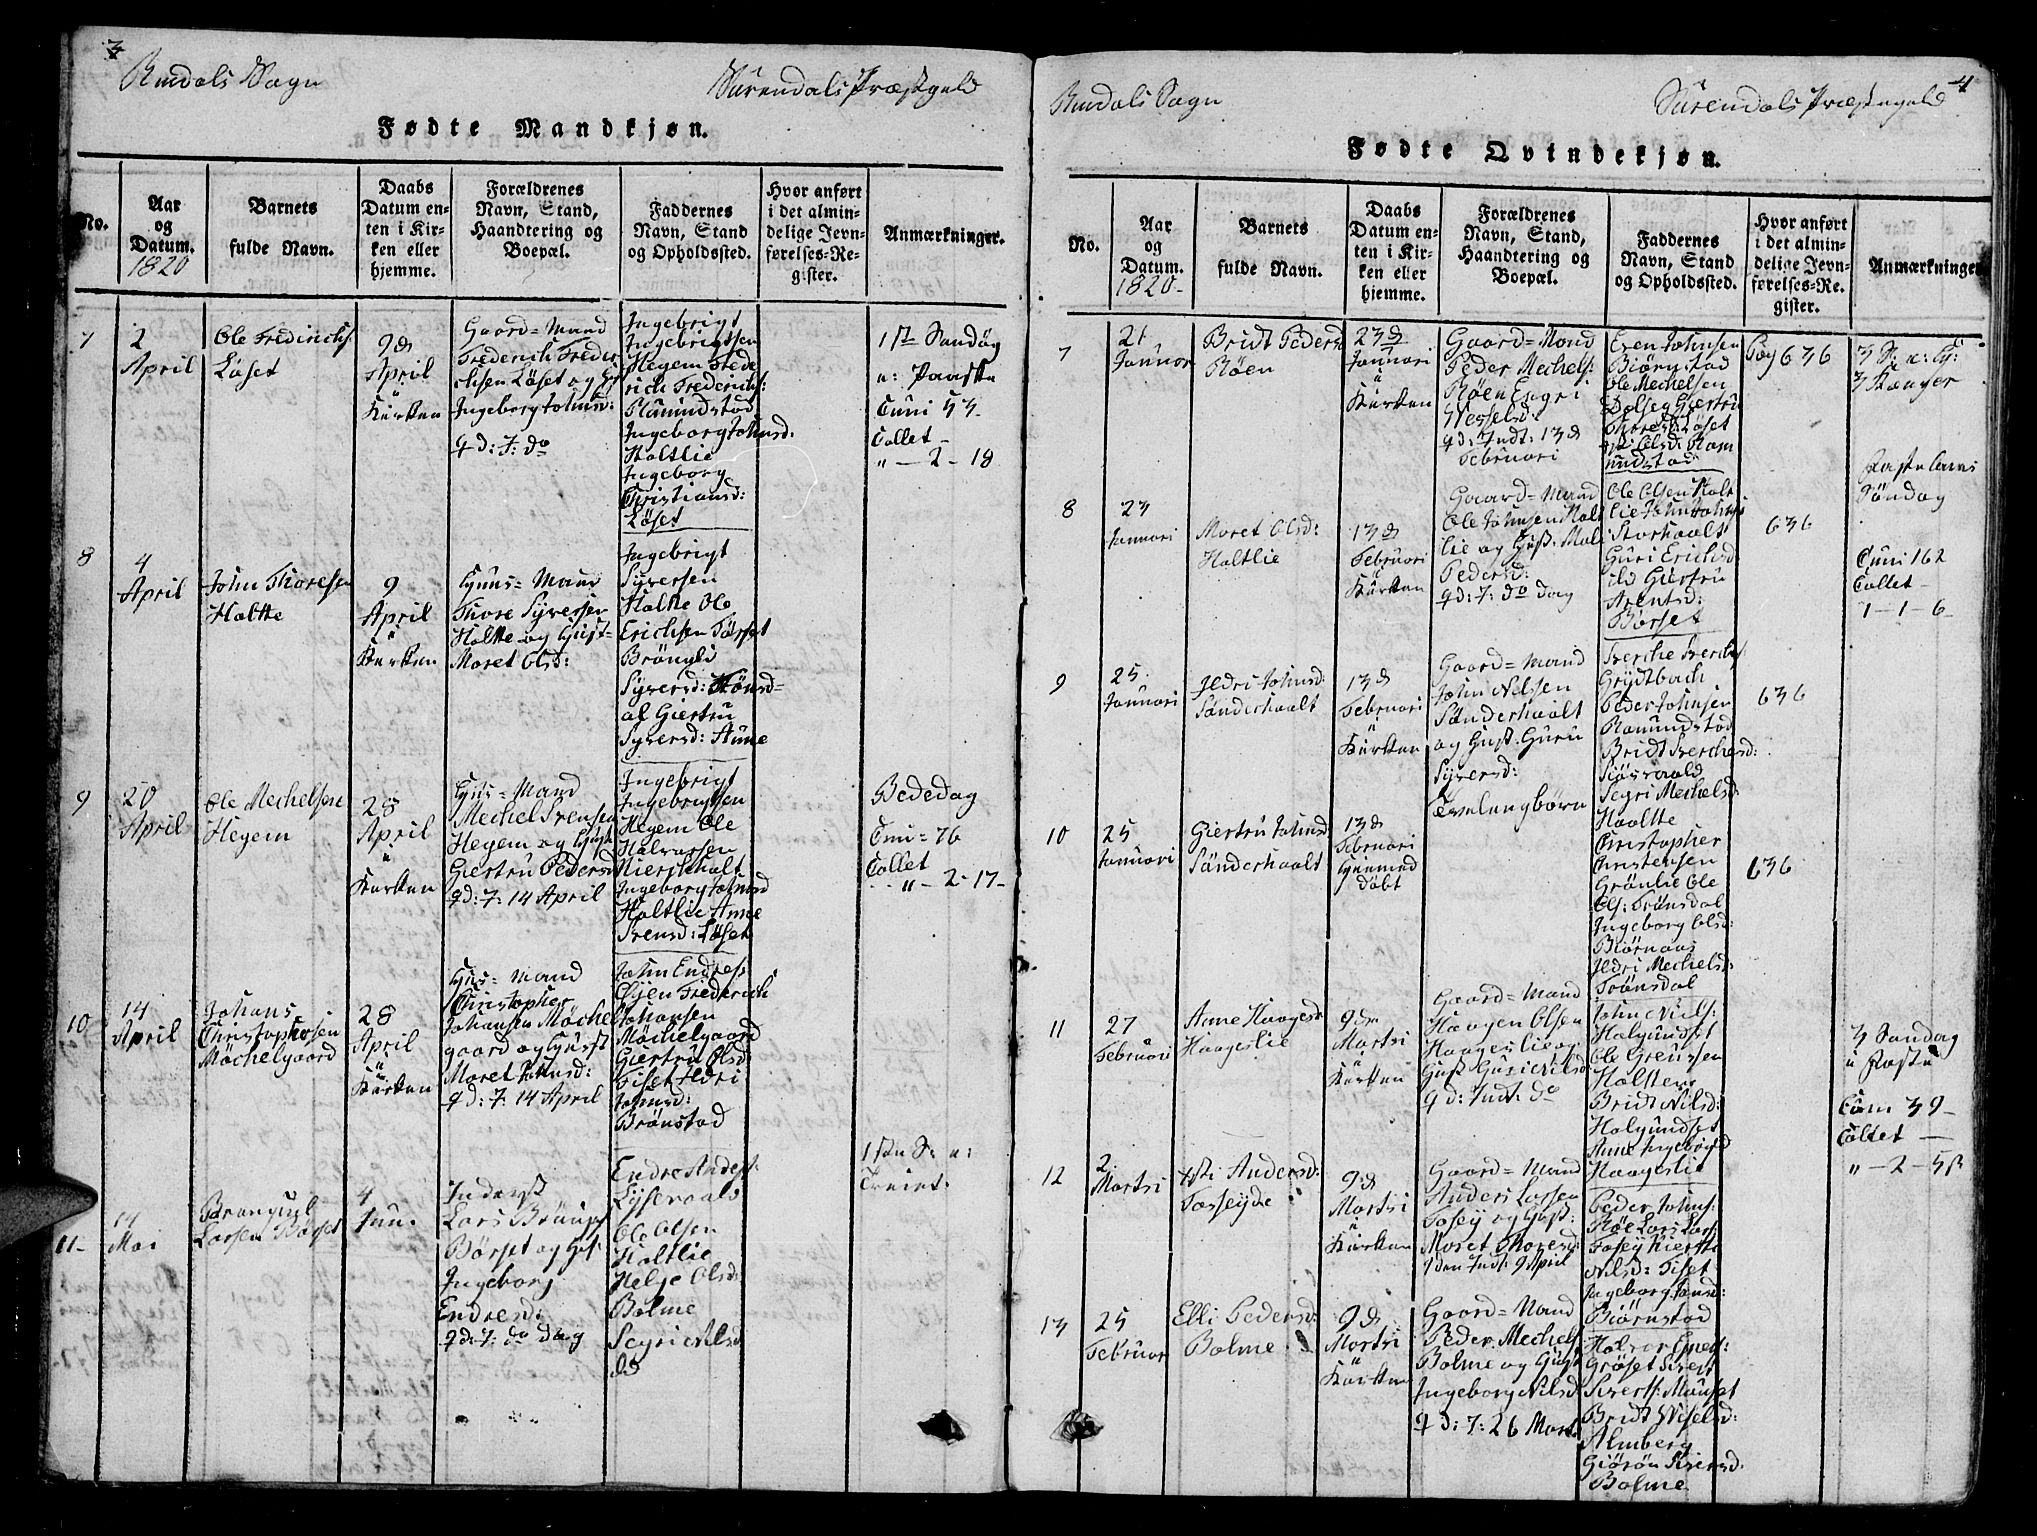 3
Rindals Sogn
Surendals Præstgeld
Fødte Mandkjøn.
No.
Aar
og
Datum.
1820
Barnets
fulde Navn.
Daabs
Datum en-
ten i Kir-
ken eller
hjemme.
Forældrenes
Navn, Stand,
Haandtering og
Boepæl.
Faddernes
Navn, Stand
og Opholdssted.
Hvor anført
i det almin-
delige Jevn-
førelses-Re-
gister.
Anmærkninger.
7
2
April
Ole Fredrichs:
Løset
9d
April
Kirken
Gaard=Mand
Frederich Freder
ichsen Løset og
Ingeborg Johnsd:
q d: 7: do
Ingebrigt
Ingebrigtsen
Hegem Frede
rich Frederichs:
Romundstad
Ingeborg Johnsd:
Holtlie
Ingeborg
Christiansd:
Løset
1ste Søndag
Paaske
53
Collet
" - 2 - 18
8
4
April
John Thoresen
Holtte
9
April
Kirken
Huus=Mand
Thore Syversen
Holtte og Hust=
Moret Olsd:
Ingebrigt
Syversen
Holtte Ole
Erichsen Førset
Brøngli
Syversd:
al Giertru
Syversd: Aune
9
20
April
Ole Mechelsen
Hegem
28
April
Kirken
Huus=Mand
Mechel Svensen
Hegem og Hust
Giertru Pedersd
q d: 7: 14 April
Ingebrigt
Ingebrigtsen
Hegem Ole
Halvorsen
Nierschalt
Ingeborg Johnsd
Holtlie Anne
Svensd: Løset
Bededag
76
Collet
" - 2 - 17 -
10
14
April
Johans
Christophersen
Møchelgaard
28
April
Kirken
Huus=Mand
Christopher
Johansen Møchel
gaard og Hust
Moret Johnsd:
q d: 7: 14 April
John Endres
Øyen Frederich
Johansen
Møchelgaard
Giertru Olsd
Fiset Ildri
Johnsd:
Brønstad
11
14
Mai
Larsen Børset
4
Juni
Inderst
Lars
Børset og
Ingeborg
Endresd:
q d: 7: do dag
Endre Anders:
Ole Olsen
Holtlie
Helge Olsd:
Bolme
Segri Nilsd
1ste S: e:
Trinit:
4
Rindals Sogn
Surendals Præstegeld
Fødte Qvindekjøn.
No.
Aar
og
Datum.
1820-
Barnets
fulde Navn.
Daabs
Datum en-
ten i Kir-
ken eller
hjemme.
Forældrenes
Navn, Stand,
Haandtering og
Boepæl.
Faddernes
Navn, Stand
og Opholdssted.
Hvor anført
i det almin-
delige Jevn-
førelses-Re-
gister.
Anmærkninger
7
21
Januar
Bridt Pedersd
Røen
23d
Januari
Kirken
Gaard=Mand
Peder Mechels:
Røen Engri
Wesselsd:
q d: Indt: 13d
Februari
Even Johnsen
Biørnstad
Ole Mechelsen
Giertru
Løset
Rom
undstad
Pag 636
3 S: e: H:
3 Konger
8
23
Januari
Moret Olsd:
Holtlie
13d
Februari
Kirken
Gaard=Mand
Ole Johnsen Holt
lie og Hust. Mali
Pedersd:
q d: 7: do dag
Ole Olsen Holt
lie John Johns
Storholt
Guri Erichsd
Giertru
Arentsd:
Børset
636
Fastelavns
Søndag
162
Collet -
1 - 1 - 6 -
9
25
Januari
Ildri Johnsd:
Sønderhaalt
13d
Februari
Kirken
Gaard=Mand
John Nilsen
Sønderhaalt
og Hust. Guru
Syversd:
Tvelingbørn
Sverche Sverches
Grydtbach
Peder Johnsen
Romundstad
Bridt Sverchesd:
Segri Mechelsd
Haaltte
636
10
25
Januari
Giertru Johnsd
Sønderhaalt
13d
Februari
Hiemmed
døbt
Christopher
Christensen
Grønlie Ole
Ols: Trønsdal
Ingeborg Olsd:
Biørnaas
Ildri Mechelsd:
Trønsdal
636
11
27
Februari
Anne Haagesd
Haageslie
9d
Martsi
Kirken
Gaard=Mand
Haagen Olsen
Haageslie og
Hust Guri Nilsd
q d: Indt: do
John Niels:
Halgundset
Ole Greussen
Holtten
Bridt Nilsd:
Halgundset
Anne Ingebrigd
Haageslie
3 Søndag
i Faste
39 -
Collet -
" - 2 - 5 ß
12
2
Martsi
Andersd:
Fosseyde
9d
Martsi
Kirken
Gaard=Mand
Anders Larsen
Fosey og Hust:
Moret Thoresd:
1 den Indt: 9 April
Peder Johns:
Røe Lars Lars
Fosey
Nilsd: Fiset
Ingeborg Jonsd:
Biørnstad
13
25
Februar
Elli Pedersd
Bolme
9d
Martsi
Kirken
Gaard=Mand
Peder Mechels
Bolme og Hust
Ingeborg Nilsd
q d: 7: 26 Mart.
Halvor
Grøset Sivert
Siverts: Mauset
Bridt Wesselsd:
Almberg
Giørøn Siversd:
Bolme